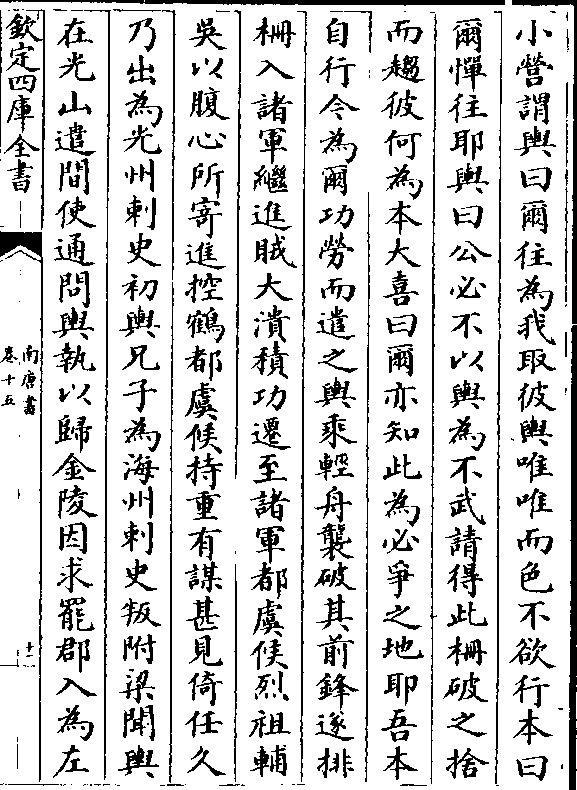 小營謂輿曰爾往為我取彼輿唯唯而色不欲行本曰
爾憚往耶輿曰公必不以輿為不武請得此柵破之捨
而趨彼何為本大喜曰爾亦知此為必爭之地耶吾本
自行今為爾功勞而遣之輿乘輕舟襲破其前鋒遂排
柵入諸軍繼進賊大潰積功遷至諸軍都虞候烈祖輔
吳以腹心所寄進控鶴都虞候持重有謀甚見倚任久
乃出為光州刺史初輿兄子為海州刺史叛附梁聞輿
在光山遣間使通問輿執以歸金陵因求罷郡入為左
欽定四庫全書
南唐書
卷十五
十一